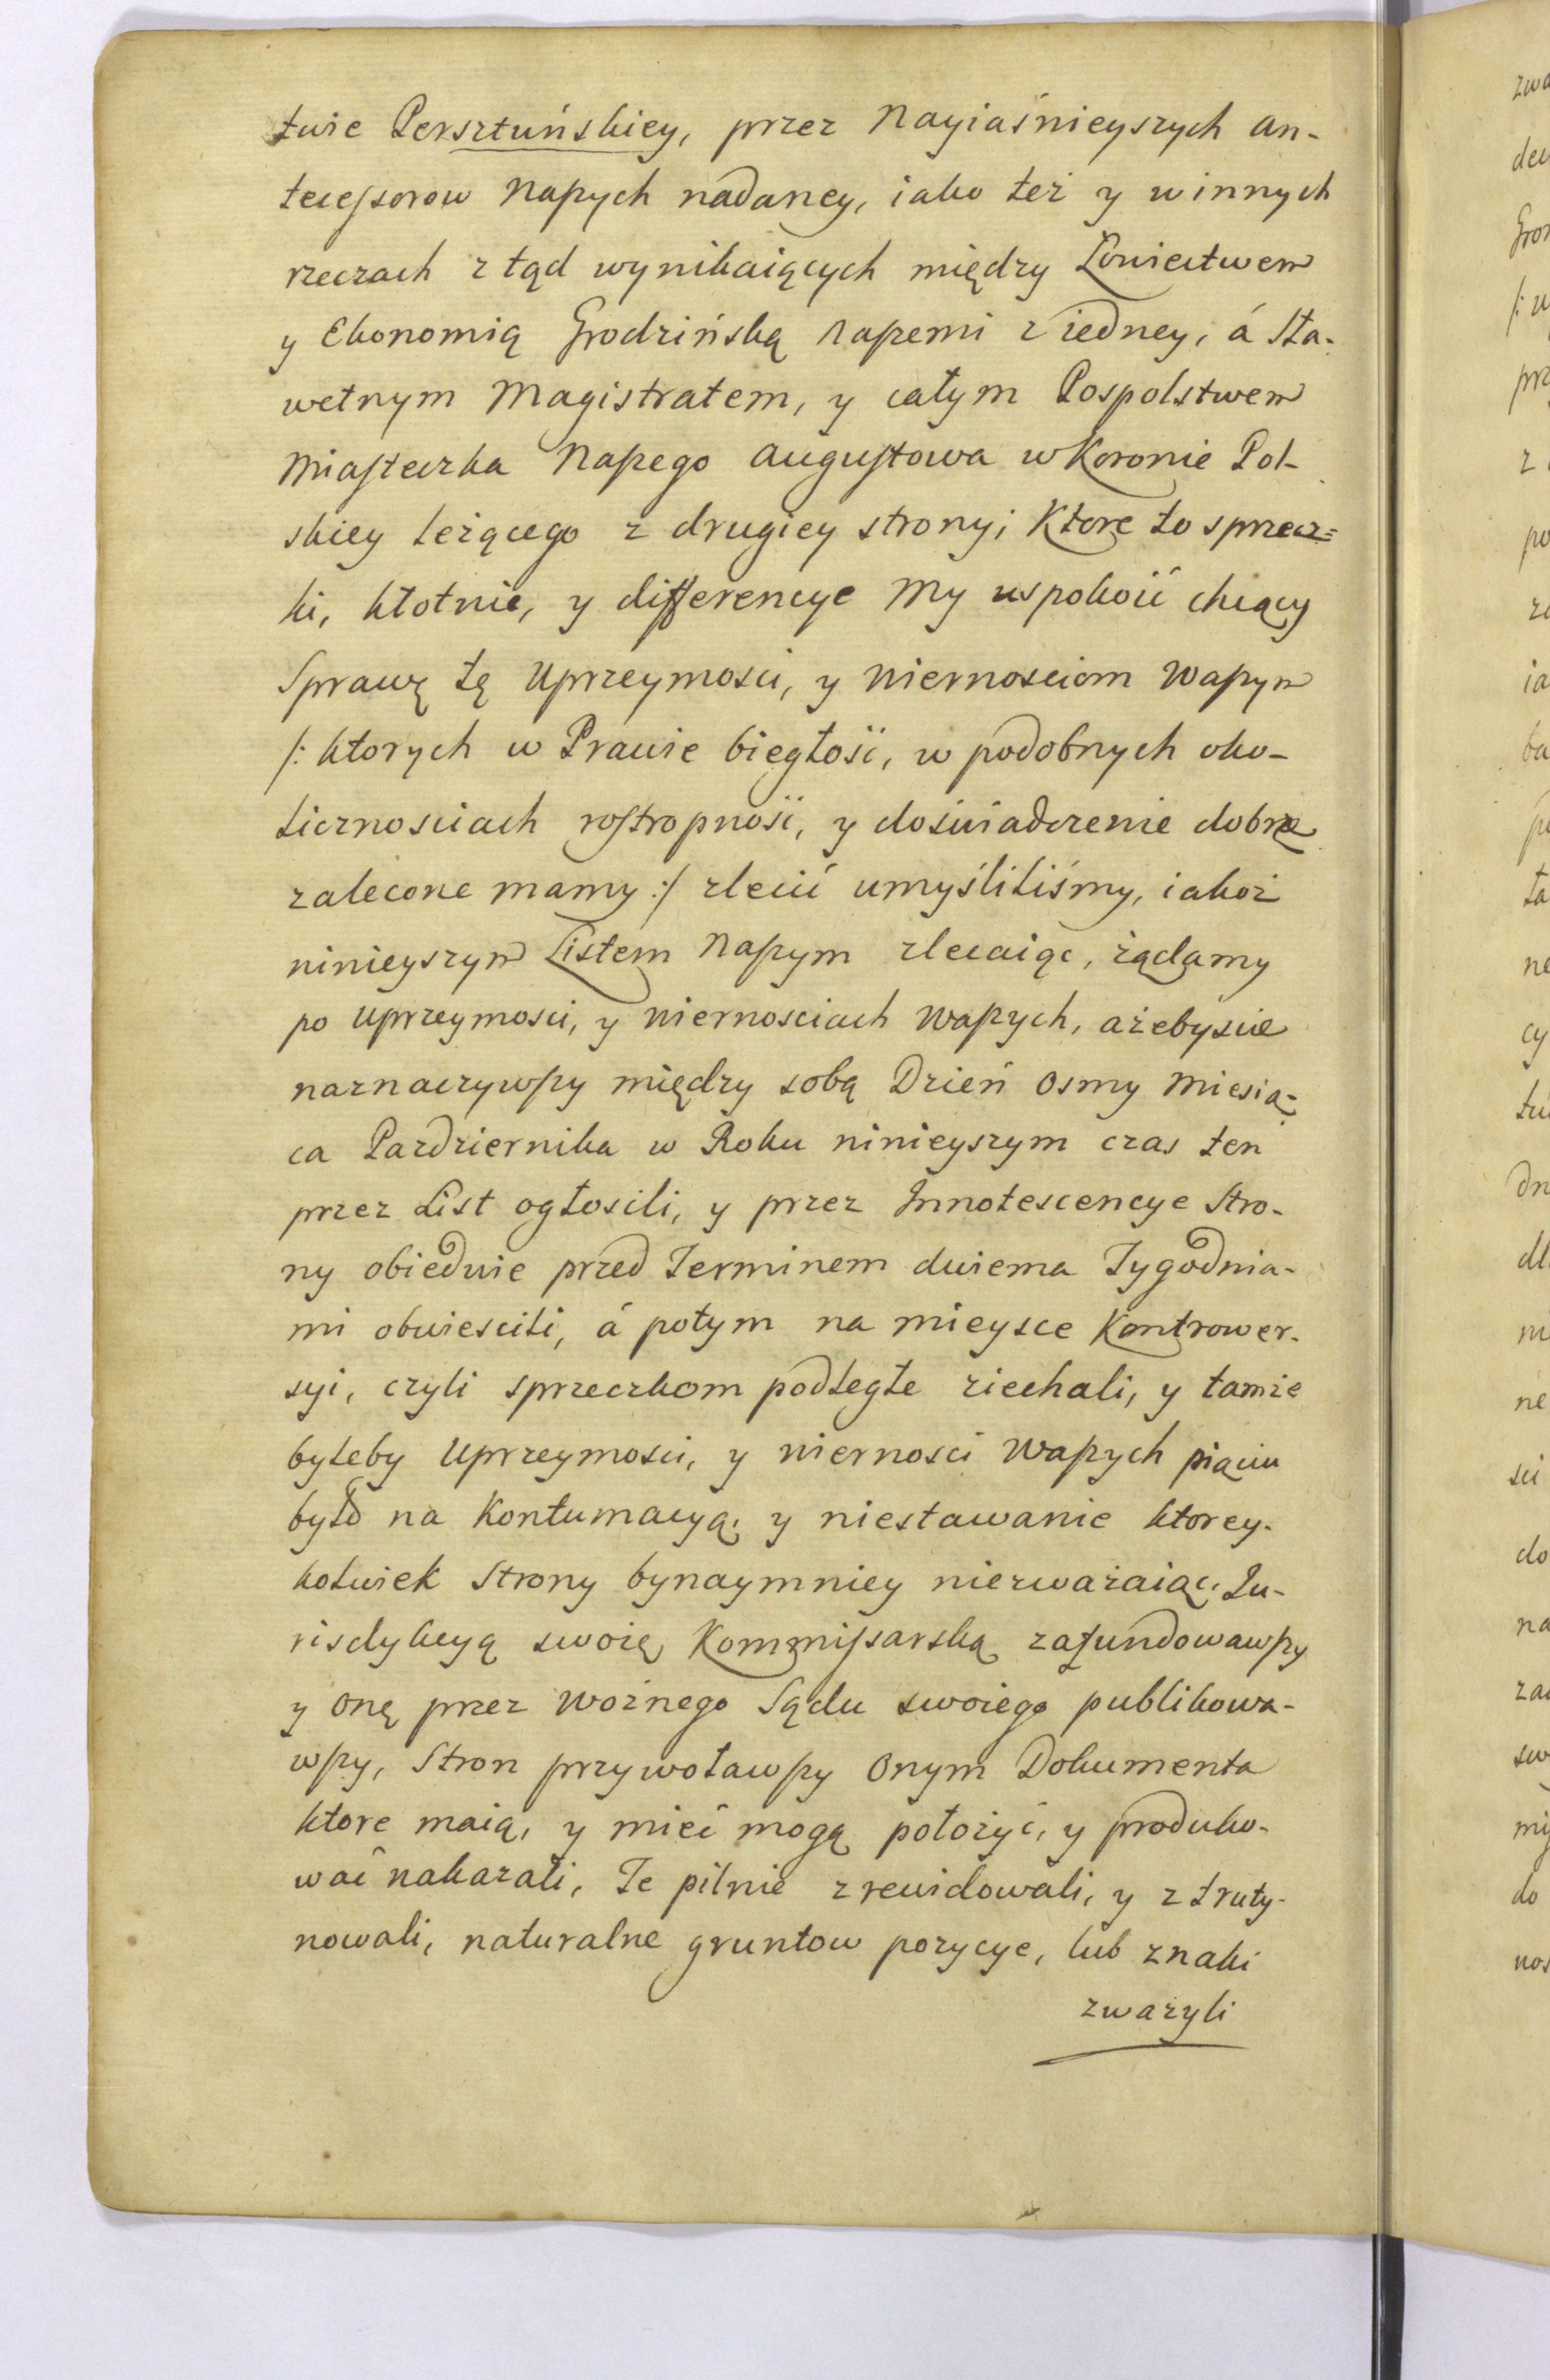 twie Persztuńskiey, przez Nayiaśnieyszych An-
tecessorow Naszych nadaney, iako też y w innych
rzeczach z tąd wynikaiących między Łowiectwem
y Ekonomią Grodzińską Naszemi z iedney, á Sła-
wetnym Magistratem, y całym Pospolstwem
Miasteczka Naszego Augustowa w Koronie Pol-
skiey leżącego z drugiey strony; Ktore to sprzecz=
ki, kłotnie, y differencye My uspokoić chcący
Sprawę tę Uprzeymosci, y Wiernosciom Waszym
/: ktorych w Prawie biegłość, w podobnych oko-
licznosciach rostropność, y doświadczenie dobrze
zalecone mamy :/ zlecić umyśliliśmy, iakoż
ninieyszym Listem Naszym zlecaiąc, żądamy
po Uprzeymosci, y Wiernosciach Waszych, ażebyście
naznaczywszy między sobą Dzień Osmy Miesią-
ca Pazdziernika w Roku ninieyszym czas ten
przez List ogłosili, y przez Innotescencye Stro-
ny obiedwie przed Terminem dwiema Tygodnia-
mi obwiescili, á potym na mieysce Kontrower-
syi, czyli sprzeczkom podległe ziechali, y tamże
byleby Uprzeymosci, y Wiernosci Waszych pięciu
było na Kontumacyą, y niestawanie ktorey-
kolwiek Strony bynaymniey niezważaiąc, Ju-
risdykcyą swoię Kommissarską zafundowawszy
y onę przez Woźnego Sądu swoiego publikowa-
wszy, Stron przywoławszy Onym Dokumenta
ktore maią, y mieć mogą położyć, y produko-
wać nakazali, Te pilnie zrewidowali, y ztruty-
nowali, naturalne gruntow pozycye, lub znaki
zważyli